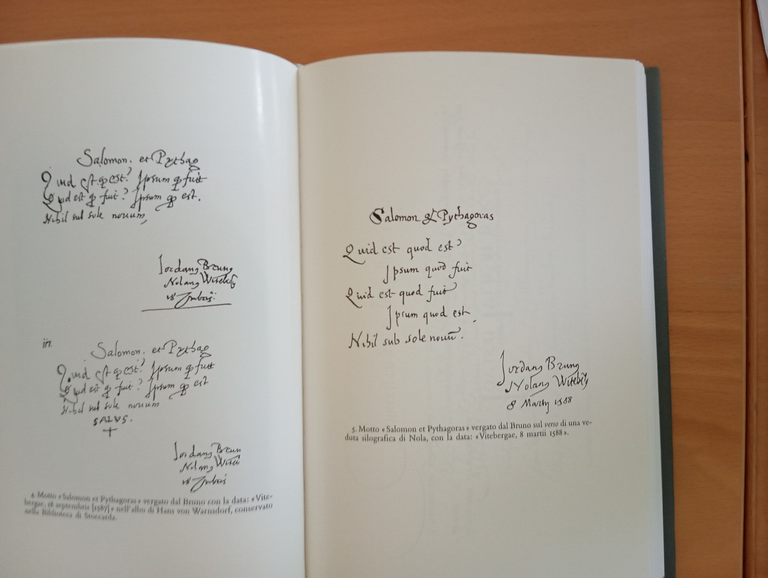 Salomon. et Pythag
Quid est qd est? Ipsum qd fuit
Quid est qd fuit? Ipsum qd est.
Nihil sub sole novum,
Jordanus Brunus
Nolanus Witeb
18 7mbris.
in
Salomon. et Pythag
Quid est qd est? Ipsum qd fuit
Quid est qd fuit? Ipsum qd est
Nihil sub sole novum
SALUS.
Jordanus Brunus
Nolanus Witeb
18 7mbris
4. Motto «Salomon et Pythagoras» vergato dal Bruno con la data: «Vite-
bergae, 18 septembris [1587]» nell'albo di Hans von Warnsdorf, conservato
nella Biblioteca di Stoccarda.
Salomon & Pythagoras
Quid est quod est?
Ipsum quod fuit
Quid est quod fuit
Ipsum quod est.
Nihil sub sole novũ.
Jordanus Brunus
Nolanus Witeb
8 Martij 1588
5. Motto «Salomon et Pythagoras» vergato dal Bruno sul verso di una ve-
duta silografica di Nola, con la data: «Vitebergae, 8 martii 1588».